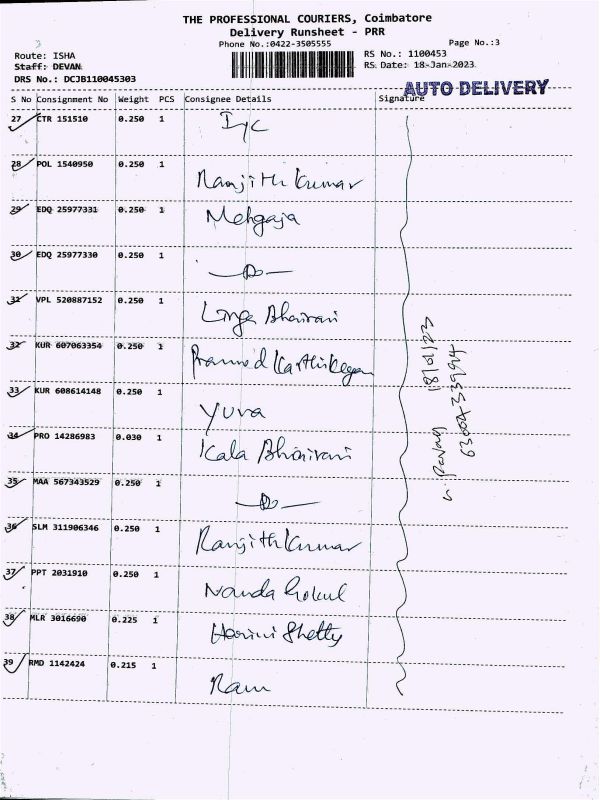 THE PROFESSIONAL COURIERS, Coimbatore
Delivery Runsheet - PRR
Phone No.:0422-3505555
Page No.:3
Route: ISHA
RS No.: 1100453
Staff: DEVAN
RS Date: 18-Jan-2023
DRS No.: DCJB110045303
AUTO DELIVERY
S No Consignment No Weight PCS Consignee Details Signature
27 CTR 151510 0.250 1 Iyc
28 POL 1540950 0.250 1 Ranjith Kumar
29 EDQ 25977331 0.250 1 Mehgaja
30 EDQ 25977330 0.250 1 —Do—
31 VPL 520887152 0.250 1 Linga Bhairavi
32 KUR 607063354 0.250 1 Karthikeyan
33 KUR 608614148 0.250 1 Yuva
34 PRO 14286983 0.030 1 Kala Bhairavi
35 MAA 567343529 0.250 1 —Do—
36 SLM 311906346 0.250 1 Ranjith Kumar
37 PPT 2031910 0.250 1 Nanda Gokul
38 MLR 3016690 0.225 1 Harini Shetty
39 RMD 1142424 0.215 1 Ram
18/01/23